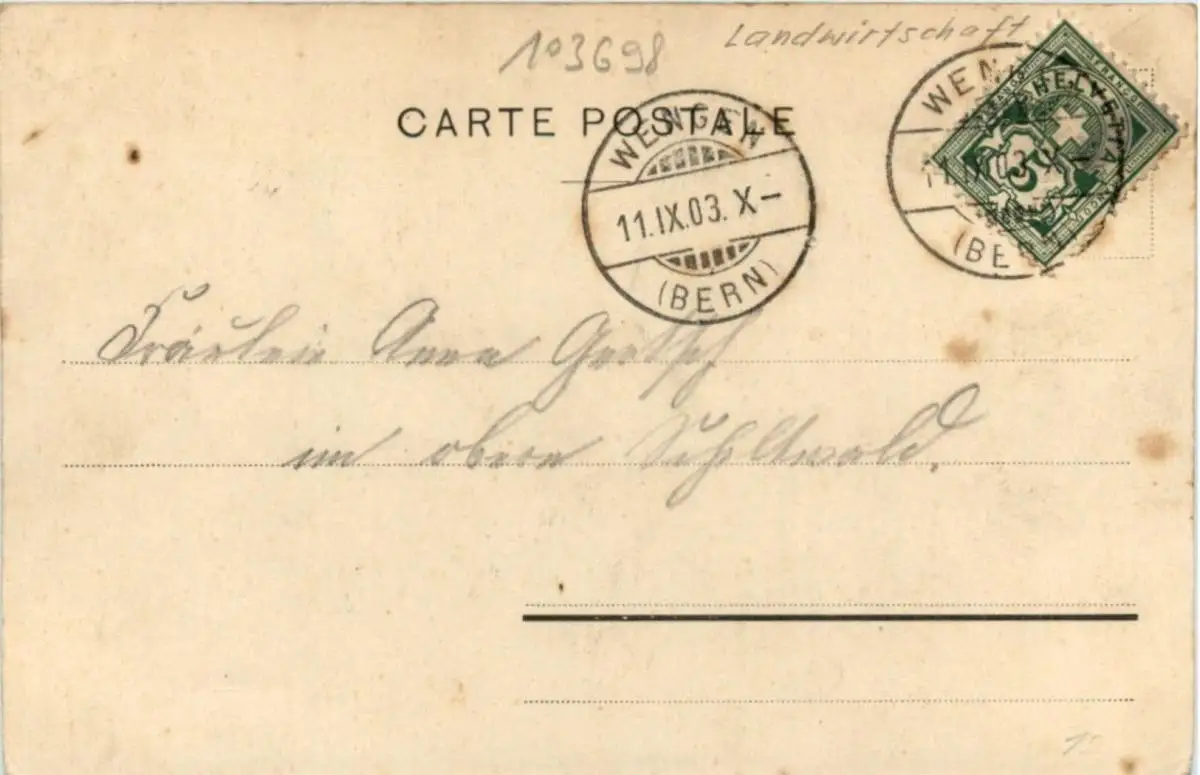 103698
Landwirtschaft
CARTE POSTALE
WENGEN
11.IX.03. X–
(BERN)
WEN
11.IX 03 X
(BE
HELVETIA
5
Fräulein Anna
im obern Sihlwald.